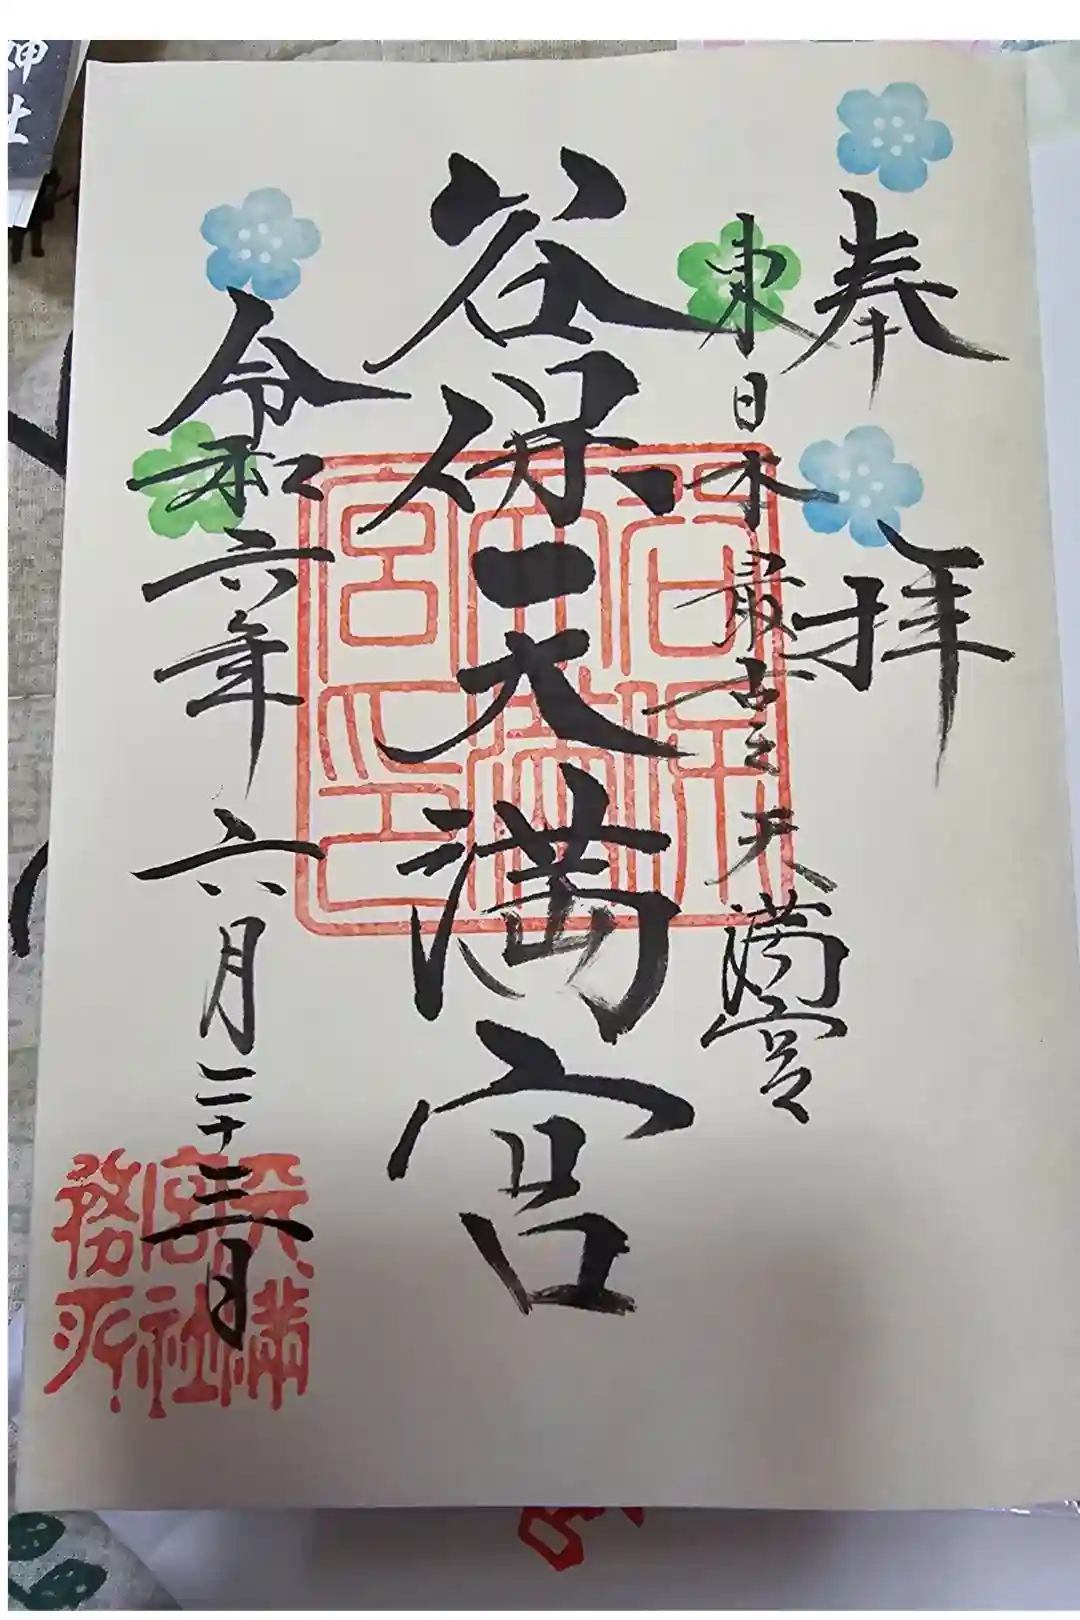 奉拝
東日本最古天満宮
谷保天満宮
令和六年六月二十三日
谷保天満宮印
天満宮社務所
神社